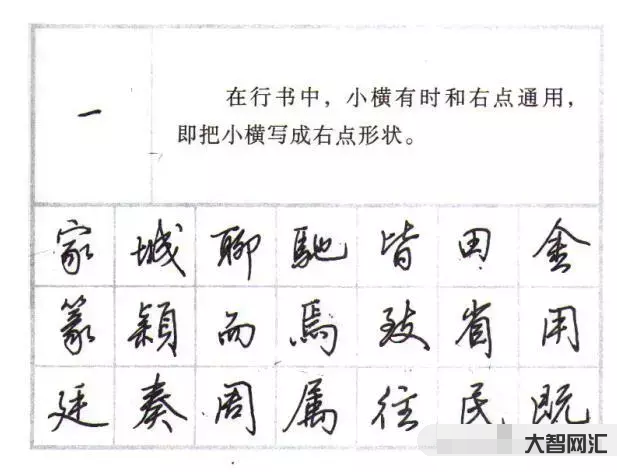 一
在行书中，小横有时和右点通用，
即把小横写成右点形状。
家 城 聊 馳 皆 田 金
篆 穎 而 焉 致 省 用
廷 奏 周 属 往 民 既
大智网汇